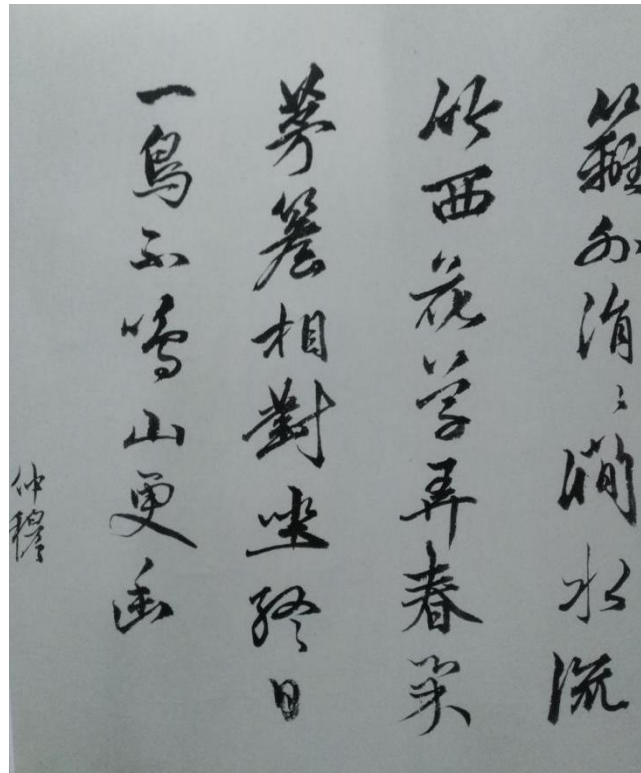 籬外涓〻澗水流
竹西花草弄春柔
茅簷相對坐終日
一鳥不鳴山更幽
仲穆